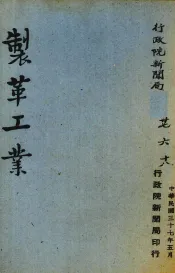 行政院新聞局
製革工業
中華民國三十七年五月
行政院新聞局印行